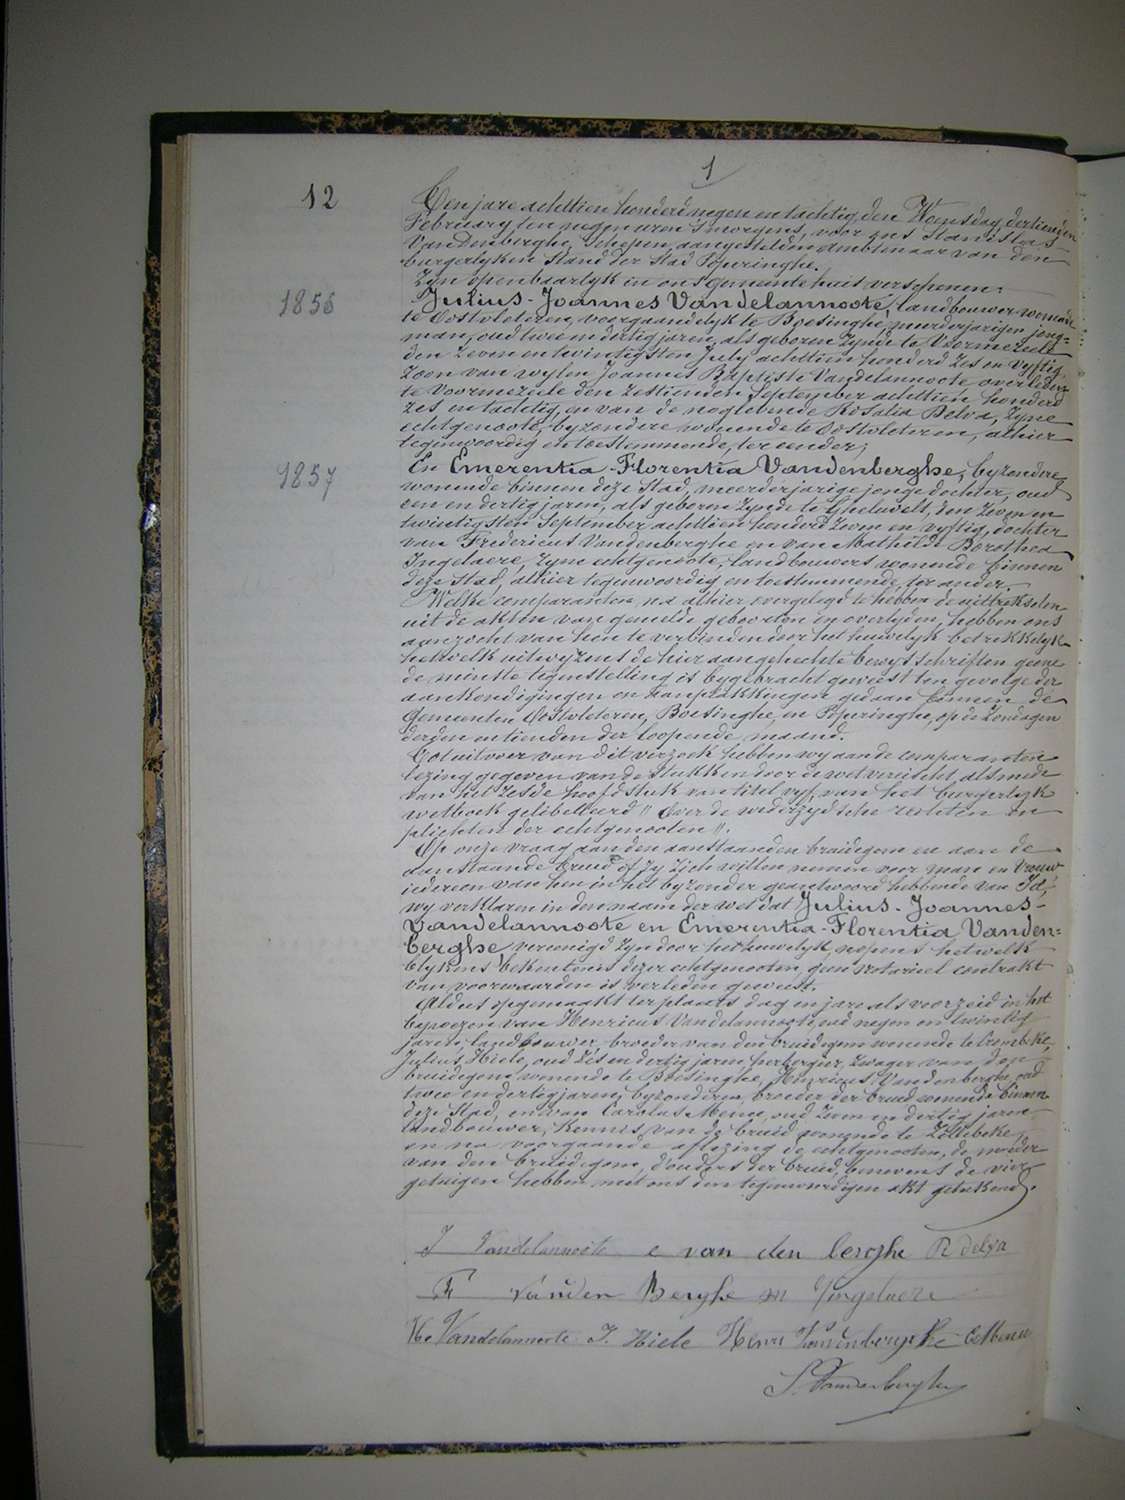 1
12
Ten jare achttien honderd negen en tachtig, den Woensdag, dertienden
February, ten negen uren 's morgens, voor ons Stanislas
Vandenberghe, Schepen, aangestelden ambtenaar van den
burgerlyken Stand der stad Poperinghe.
Zyn openbaarlyk in ons gemeente huis verschenen:
1856
Julius-Joannes Vandelannoote, landbouwer wonende
te Oostvleteren, voorgaandelyk te Boesinghe, meerderjarigen jong=
man, oud twee en dertig jaren, als geboren zynde te Voormezeele
den zeven en twintigsten July achttien honderd zes en vyftig,
zoon van wylen Joannes Baptiste Vandelannoote, overleden
te Voormezeele den zestienden September achttien honderd
zes en tachtig, en van de noglevende Rosalia Delva, zyne
echtgenoote, byzondere wonende te Oostvleteren, alhier
tegenwoordig en toestemmende, ter eender;
1857
En Emerentia-Florentia Vandenberghe, byzondere
wonende binnen deze Stad, meerderjarige jonge dochter, oud
een en dertig jaren, als geboren zynde te Gheluvelt, den zeven en
twintigsten September achttien honderd zeven en vyftig, dochter
van Fredericus Vandenberghe en van Mathilde Dorothea
Ingelaere, zyne echtgenoote, landbouwers wonende binnen
deze Stad, alhier tegenwoordig en toestemmende, ter ander.
Welke comparanten, na alhier overgelegd te hebben de uittreksels
uit de akten van gemelde geboorten en overlyden, hebben ons
aanzocht van hen te verbinden door het huwelyk betrekkelyk
hetwelk uitwyzens de hier aangehechte bewysschriften geene
de minste tegenstelling is bygebracht geweest ten gevolge der
aankondigingen en aanplakkingen gedaan binnen de
Gemeenten Oostvleteren, Boesinghe en Poperinghe, op de zondagen
derden en tienden der loopende maand.
Tot uitvoer van dit verzoek hebben wy aan de comparanten
lezing gegeven van de stukken door de wet vereischt alsmede
van het zesde hoofdstuk van titel vyf van het burgerlyk
wetboek gelibelleerd "Over de wederzydsche rechten en
plichten der echtgenooten".
Op onze vraag aan den aanstaanden bruidegom en aan de
aanstaande bruid of zy zich willen nemen voor man en vrouw
iedereen van hen in het byzonder geantwoord hebbende van Ja,
wy verklaren in den naam der wet dat Julius-Joannes-
Vandelannoote en Emerentia-Florentia Vanden=
berghe, vereenigd zyn door het huwelyk, nopens hetwelk
blykens bekentenis dezer echtgenooten, geen notarieel contrakt
van voorwaarden is verleden geweest.
Aldus opgemaakt ter plaats dag en jare als voorzeid in het
bywezen van Henricus Vandelannoote, oud negen en twintig
jaren, landbouwer, broeder van den bruidegom wonende te Crombeke,
Julius Hiele, oud zes en dertig jaren, herbergier, zwager van den
bruidegom wonende te Boesinghe, Henricus Vandenberghe, oud
twee en dertig jaren, byzonderen, broeder der bruid wonende binnen
deze Stad, en van Carolus Menu, oud zeven en dertig jaren
landbouwer, kennis van de bruid wonende te Zillebeke;
en na voorgaande aflezing de echtgenooten, de moeder
van den bruidegom, d'ouders der bruid, benevens de vier
getuigen hebben met ons den tegenwoordigen akt geteekend.
J Vandelannoote e van den berghe R delva
F vanden Berghe m Yngelaere
He Vandelannoote J. Hiele Henri Vandenberghe C Menu
S. Vandenberghe